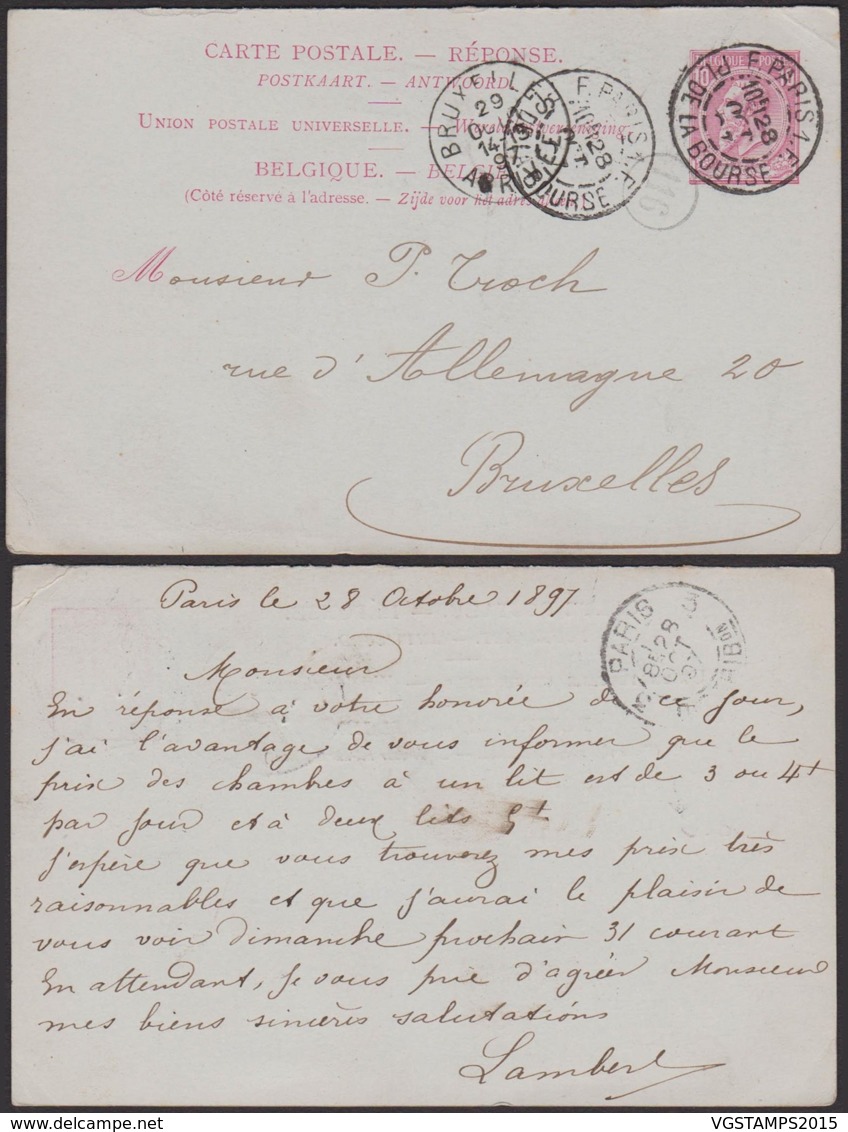 CARTE POSTALE. — RÉPONSE.
POSTKAART. — ANTWOORD.
UNION POSTALE UNIVERSELLE. —
BELGIQUE. —
(Côté réservé à l'adresse. — Zijde voor het adres
BELGIQUE POSTES
10
PARIS 1. R. F.
PL. DE LA BOURSE
BRUXELLES
29
14
PARIS
28
BOURSE
116
Monsieur P. Troch
rue d'Allemagne 20
Bruxelles
Paris le 28 Octobre 1897
PARIS 3
28
OCT
97
Monsieur
En réponse à votre honorée de ce jour,
j'ai l'avantage de vous informer que le
prix des chambres à un lit est de 3 ou 4f
par jour et à deux lits 5f
J'espère que vous trouverez mes prix très
raisonnables et que j'aurai le plaisir de
vous voir dimanche prochain 31 courant
En attendant, je vous prie d'agréer Monsieur
mes biens sincères salutations
Lambert
VGSTAMPS2015